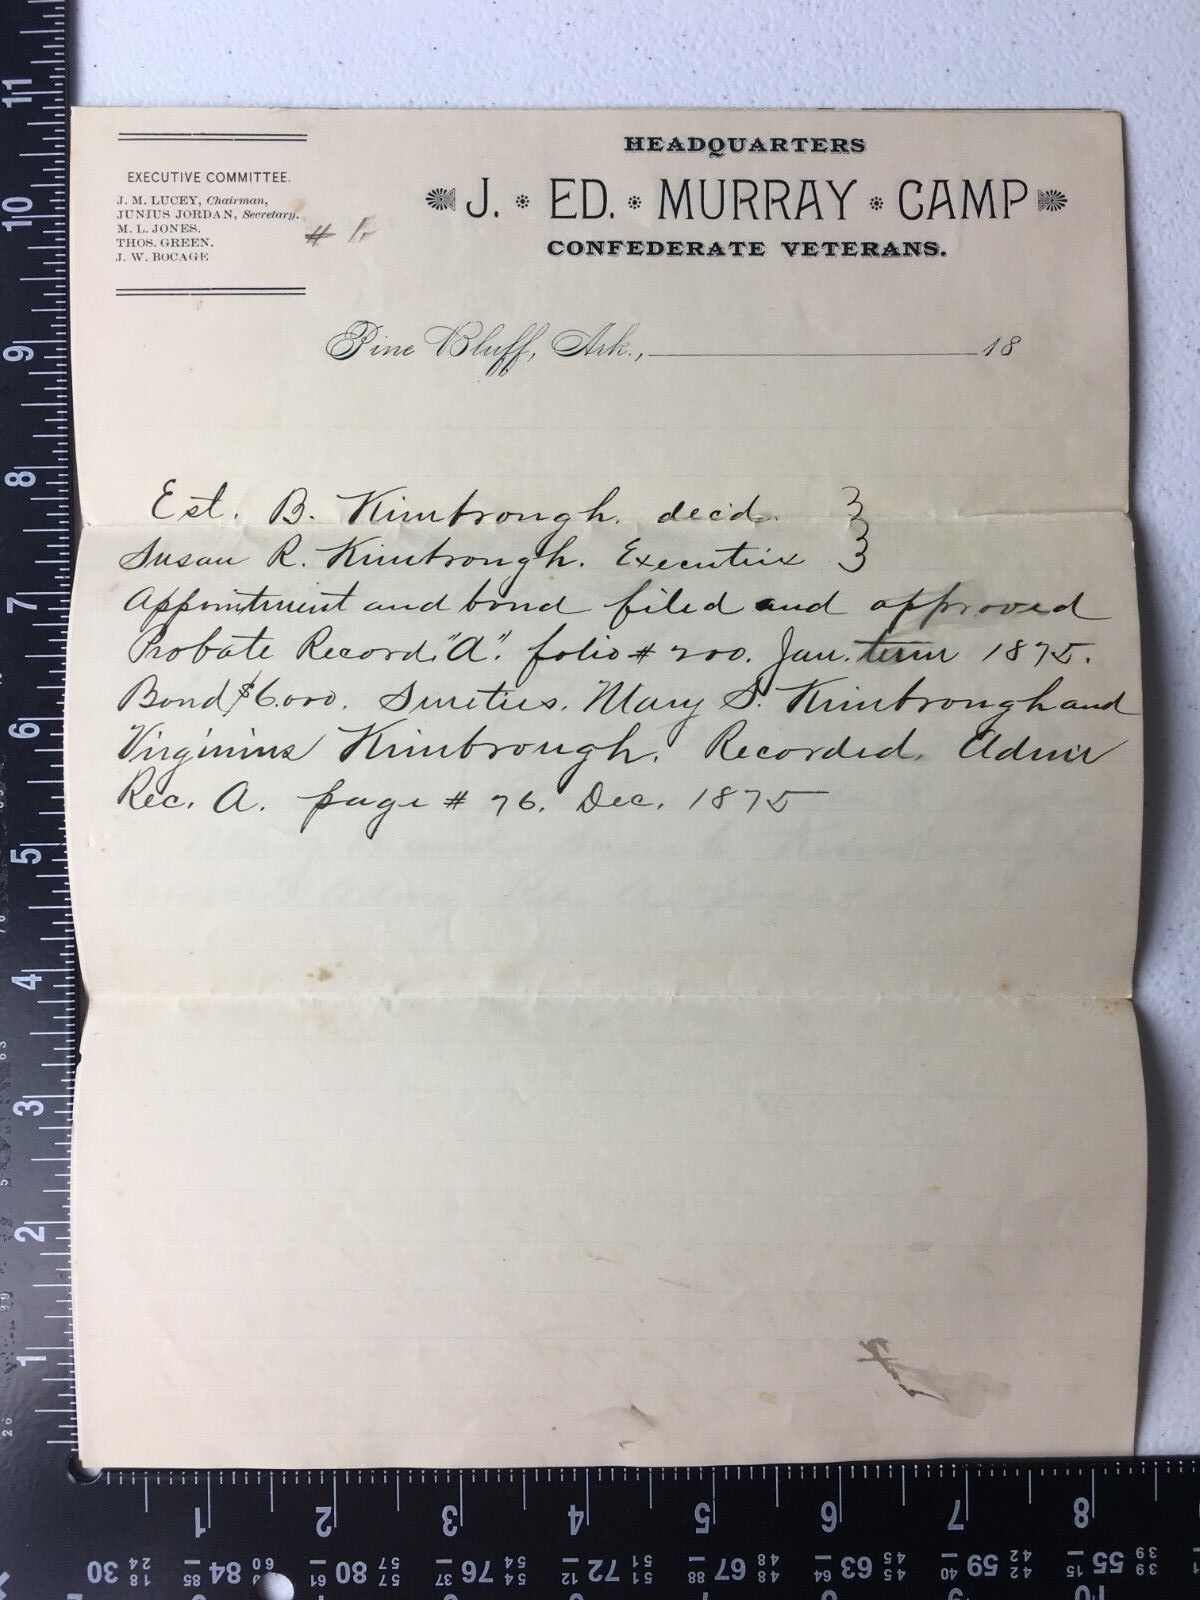 HEADQUARTERS
J. ED. MURRAY CAMP
CONFEDERATE VETERANS.
EXECUTIVE COMMITTEE.
J. M. LUCEY, Chairman,
JUNIUS JORDAN, Secretary.
M. L. JONES.
THOS. GREEN.
J. W. BOCAGE
Pine Bluff, Ark., 18
Est. B. Kimbrough. dec'd.
Susan R. Kimbrough. Executrix
Appointment and bond filed and approved
Probate Record "A". folio # 200. Jan. term 1875.
Bond $6.000. Sureties. Mary S. Kimbrough and
Virginius Kimbrough. Recorded. Admr
Rec. A. page # 76. Dec. 1875
11
10
9
8
7
6
5
4
3
2
1
1 2 3 4 5 6 7 8